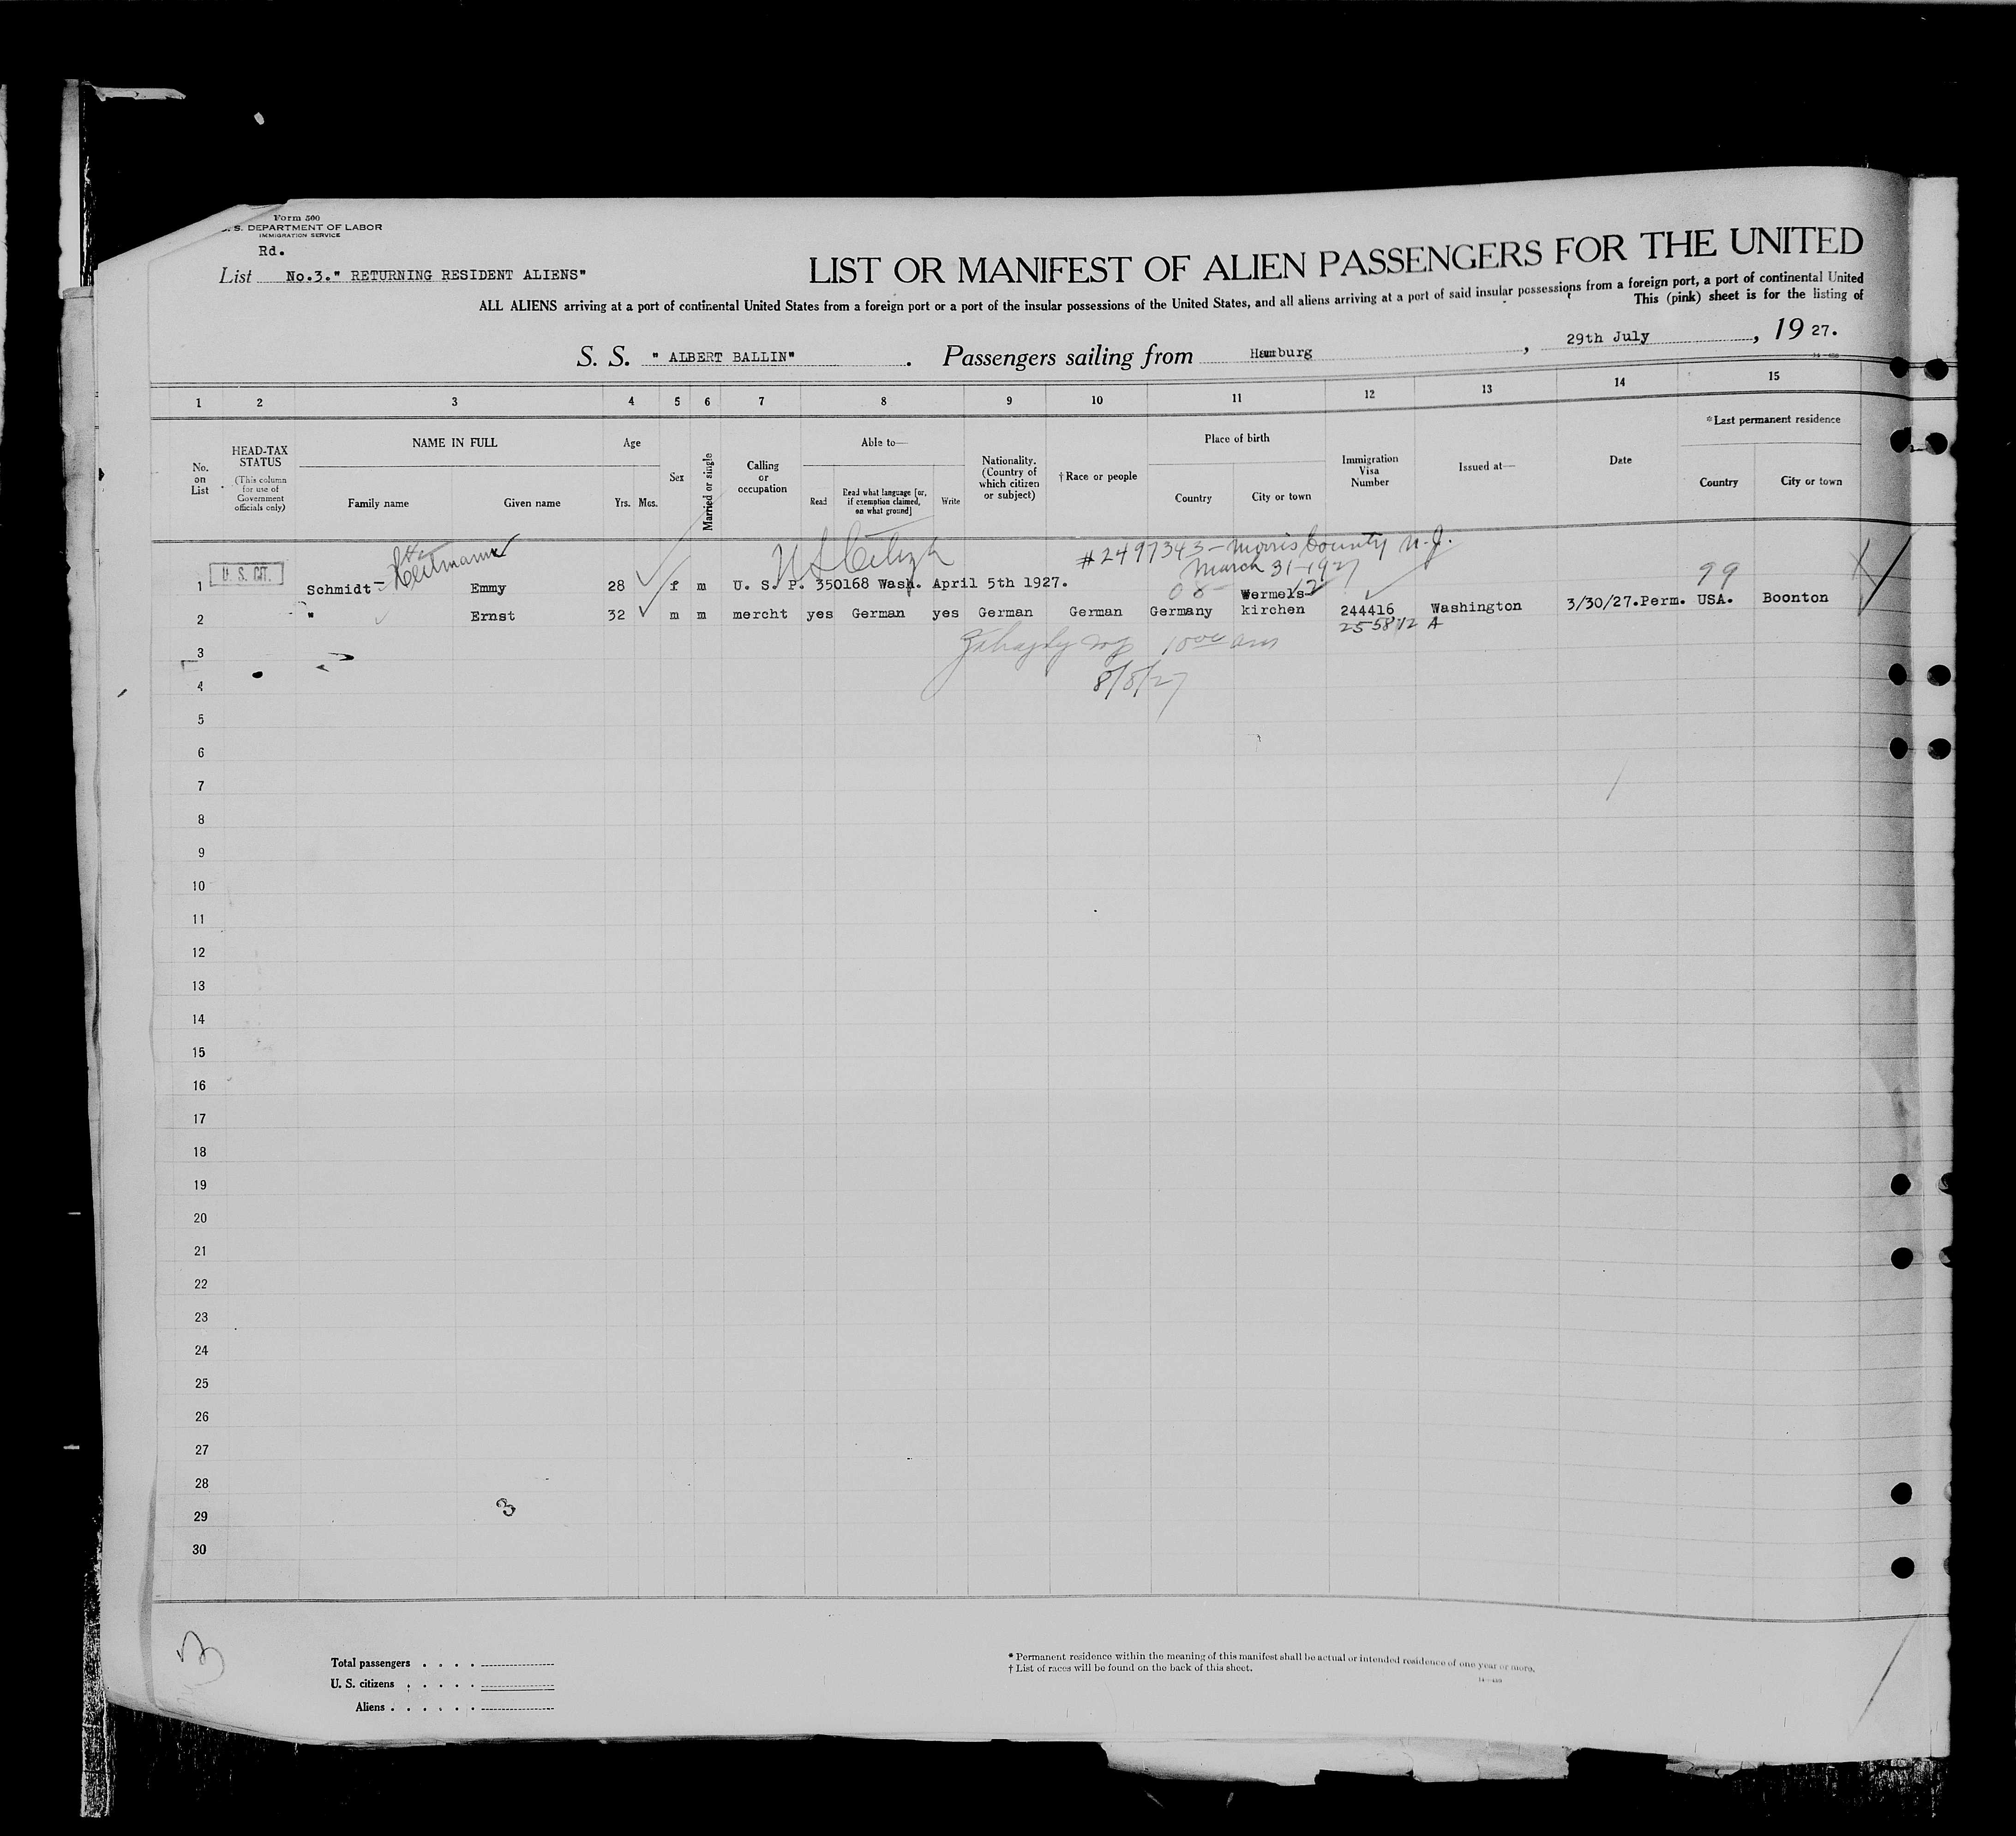 Form 500
U. S. DEPARTMENT OF LABOR
IMMIGRATION SERVICE
Rd.
List No.3." RETURNING RESIDENT ALIENS"
LIST OR MANIFEST OF ALIEN PASSENGERS FOR THE UNITED
ALL ALIENS arriving at a port of continental United States from a foreign port or a port of the insular possessions of the United States, and all aliens arriving at a port of said insular possessions from a foreign port, a port of continental United
This (pink) sheet is for the listing of
S. S. " ALBERT BALLIN" . Passengers sailing from Hamburg , 29th July , 19 27.
1 2 3 4 5 6 7 8 9 10 11 12 13 14 15
No. on List
HEAD-TAX STATUS
(This column for use of Government officials only)
NAME IN FULL
Family name Given name
Age
Yrs. Mos.
Sex
Married or single
Calling or occupation
Able to—
Read
Read what language [or, if exemption claimed, on what ground]
Write
Nationality. (Country of which citizen or subject)
† Race or people
Place of birth
Country City or town
Immigration Visa Number
Issued at—
Date
* Last permanent residence
Country City or town
#2497343 - Morris County N.J.
March 31-1927
99
1 U. S. CIT. Schmidt - Heitmann Emmy 28 f m U. S. P. 350168 Wash. April 5th 1927.
08
2 " Ernst 32 m m mercht yes German yes German German Germany Wermels-kirchen 244416 Washington 3/30/27.Perm. USA. Boonton
255812 A
3
8/8/27
4
5
6
7
8
9
10
11
12
13
14
15
16
17
18
19
20
21
22
23
24
25
26
27
28
29
30
3
3
Total passengers . . . .
U. S. citizens . . . . .
Aliens . . . . . .
* Permanent residence within the meaning of this manifest shall be actual or intended residence of one year or more.
† List of races will be found on the back of this sheet.